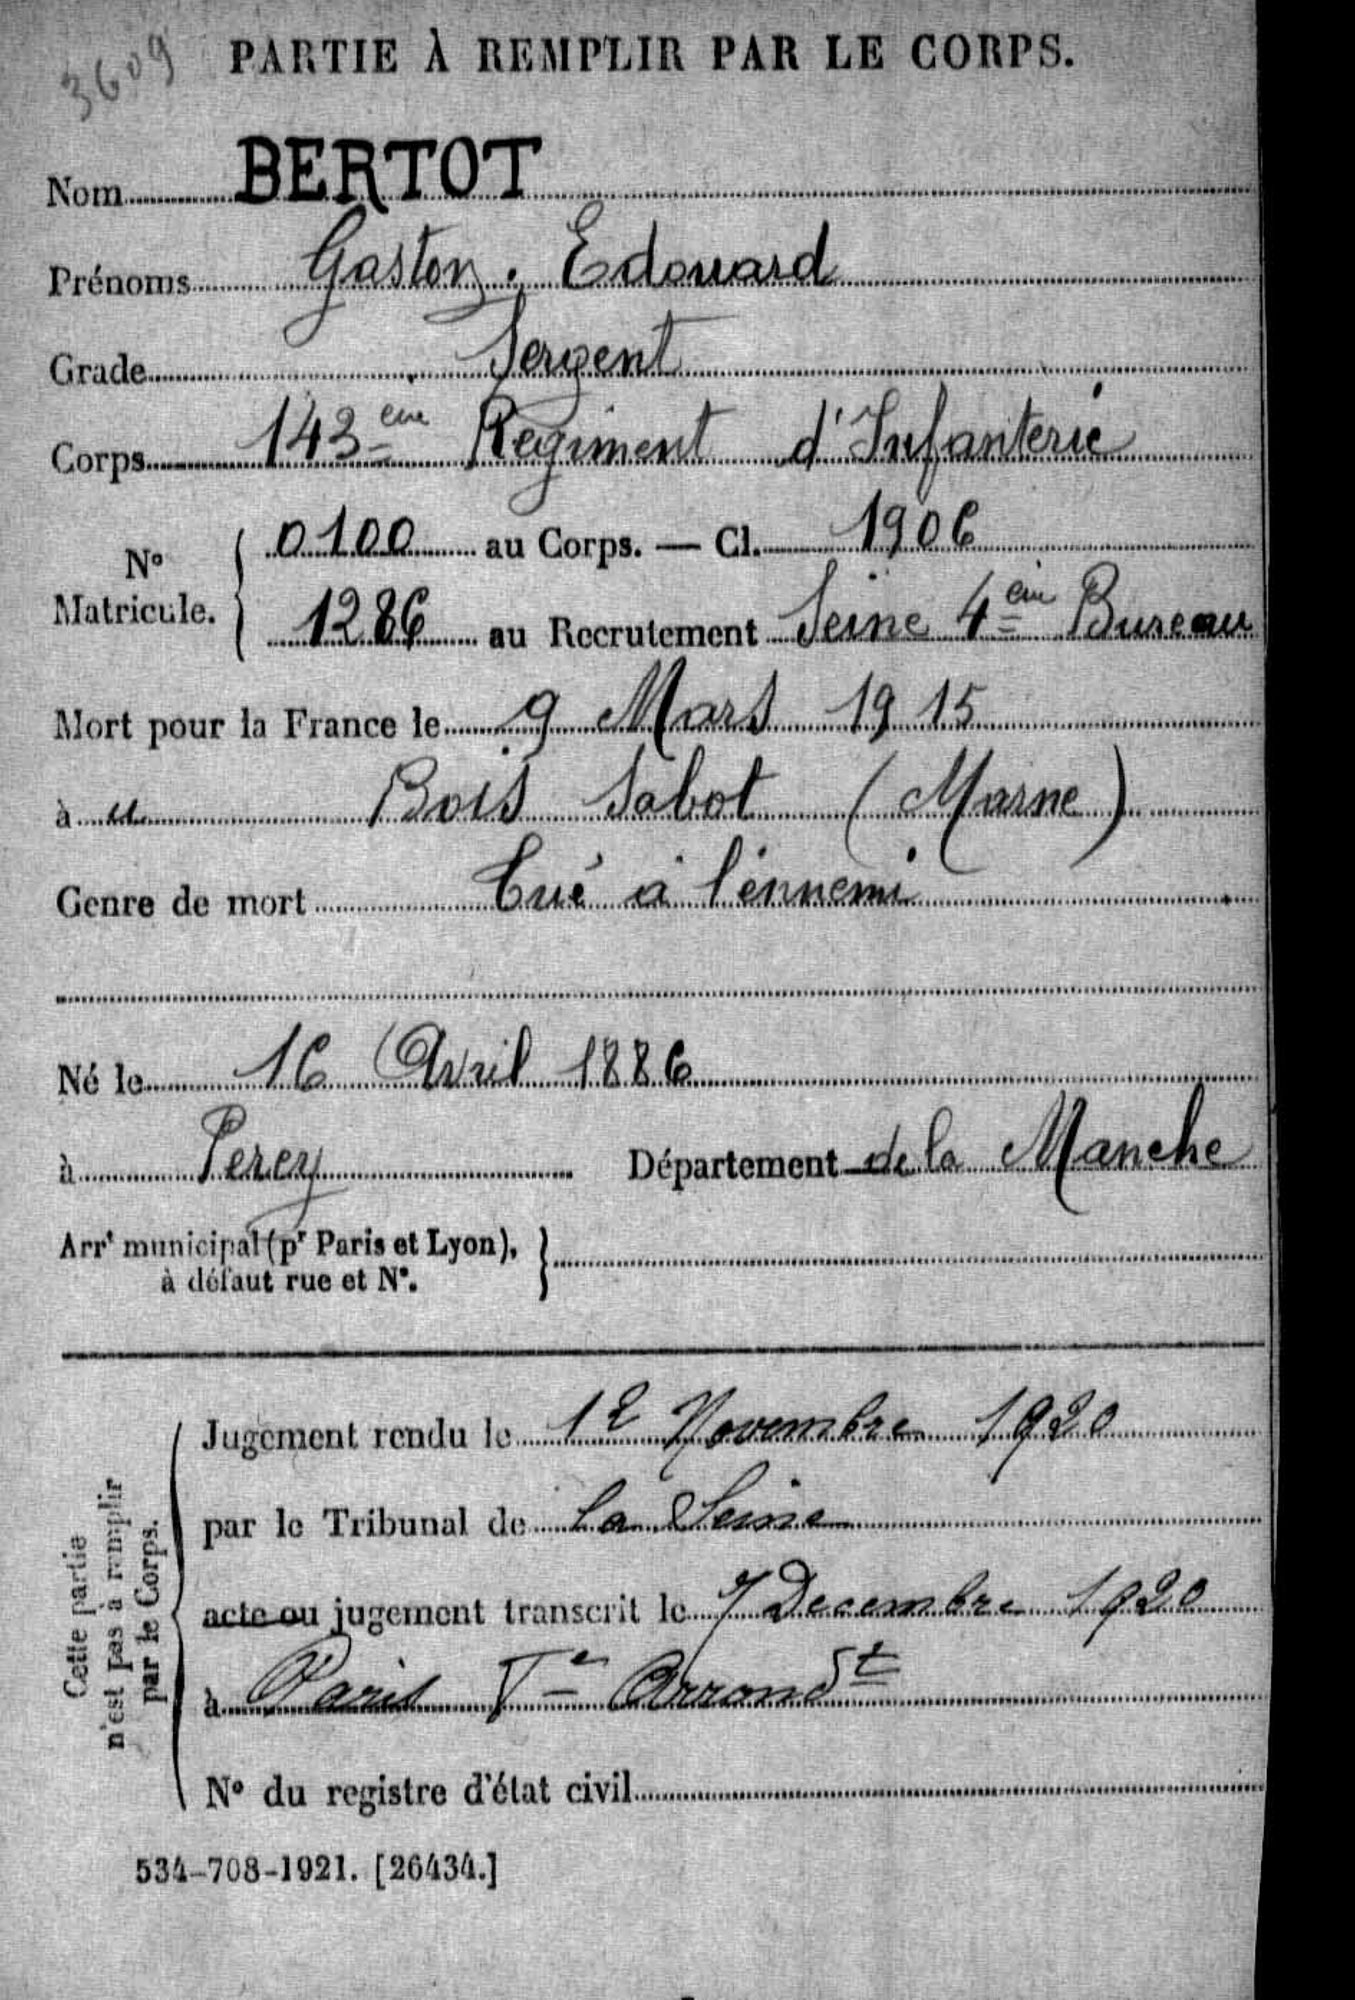 3609
PARTIE À REMPLIR PAR LE CORPS.
Nom BERTOT
Prénoms Gaston. Edouard
Grade Sergent
Corps 143ème Regiment d'Infanterie
N° Matricule. { 0100 au Corps. — Cl. 1906
1286 au Recrutement Seine 4ème Bureau
Mort pour la France le 9 Mars 1915
à u Bois Sabot (Marne)
Genre de mort Tué à l'énnemi
Né le 16 Avril 1886
à Percy Département de la Manche
Arrt municipal (pr Paris et Lyon), }
à défaut rue et N°.
Cette partie
n'est pas à remplir
par le Corps.
Jugement rendu le 12 Novembre 1920
par le Tribunal de la Seine
acte ou jugement transcrit le 7 Decembre 1920
à Paris Ve Arrondt
N° du registre d'état civil
534-708-1921. [26434.]